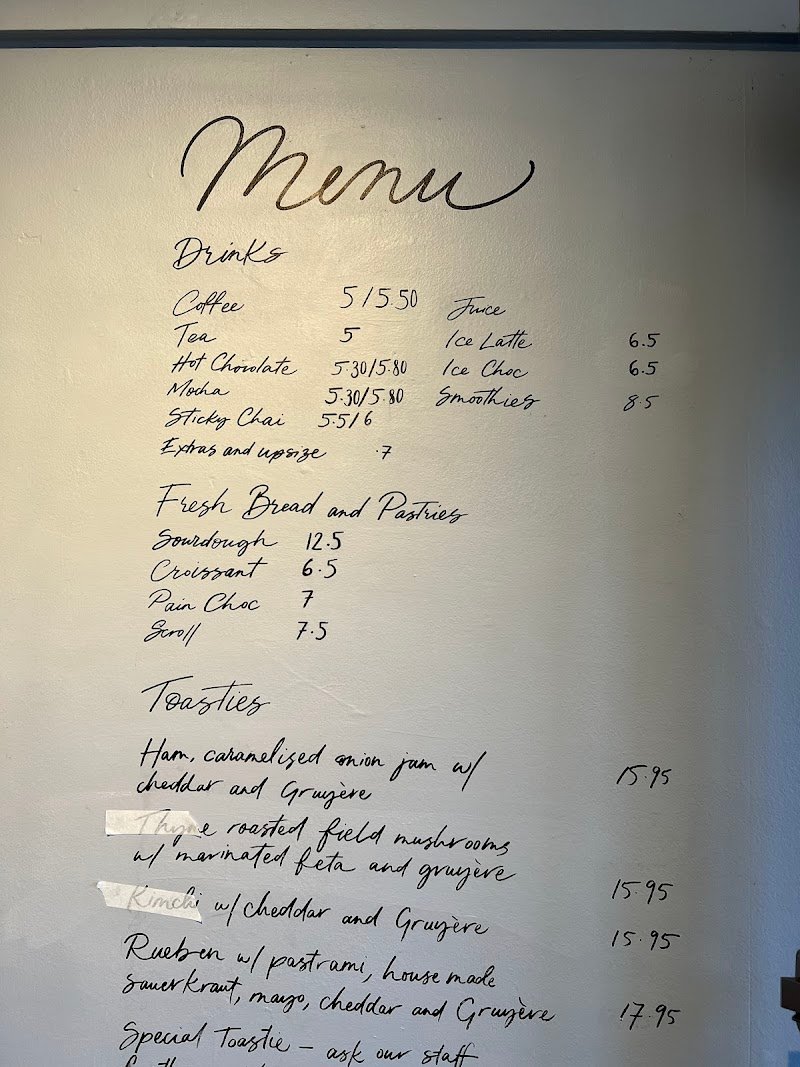 Menu
Drinks
Coffee 5/5.50
Tea 5
Hot Chocolate 5.30/5.80
Mocha 5.30/5.80
Sticky Chai 5.5/6
Extras and upsize .7
Juice
Ice Latte 6.5
Ice Choc 6.5
Smoothies 8.5
Fresh Bread and Pastries
Sourdough 12.5
Croissant 6.5
Pain Choc 7
Scroll 7.5
Toasties
Ham, caramelised onion jam w/
cheddar and Gruyère 15.95
Thyme roasted field mushrooms
w/ marinated feta and gruyère 15.95
Kimchi w/ cheddar and Gruyère 15.95
Rueben w/ pastrami, house made
sauerkraut, mayo, cheddar and Gruyère 17.95
Special Toastie – ask our staff